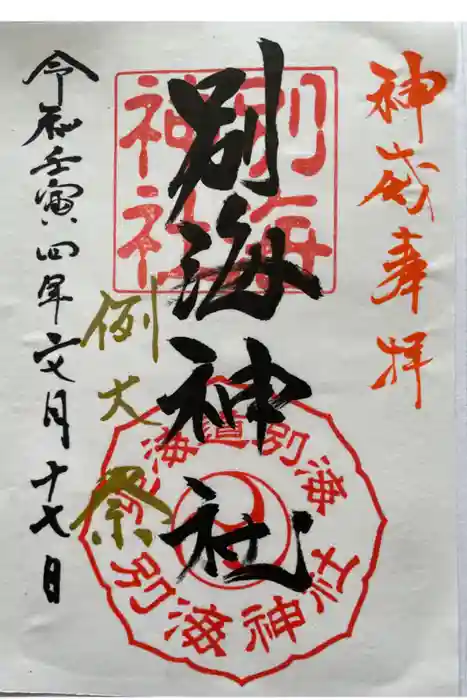 神威奉拝
別海神社
別海神社
例大祭
令和壬寅四年六月十七日
北海道別海
別海神社